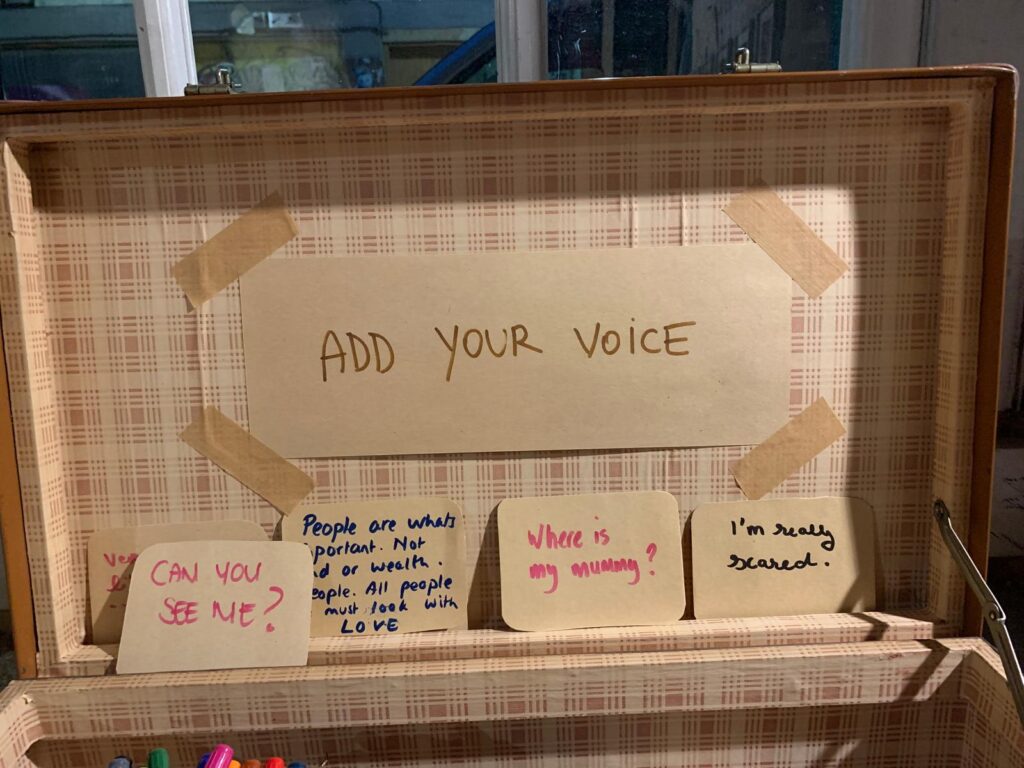 ADD YOUR VOICE
CAN YOU
SEE ME?
People are whats
portant. Not
or wealth.
people. All people
must look with
LOVE
Where is
my mummy?
I'm really
scared.